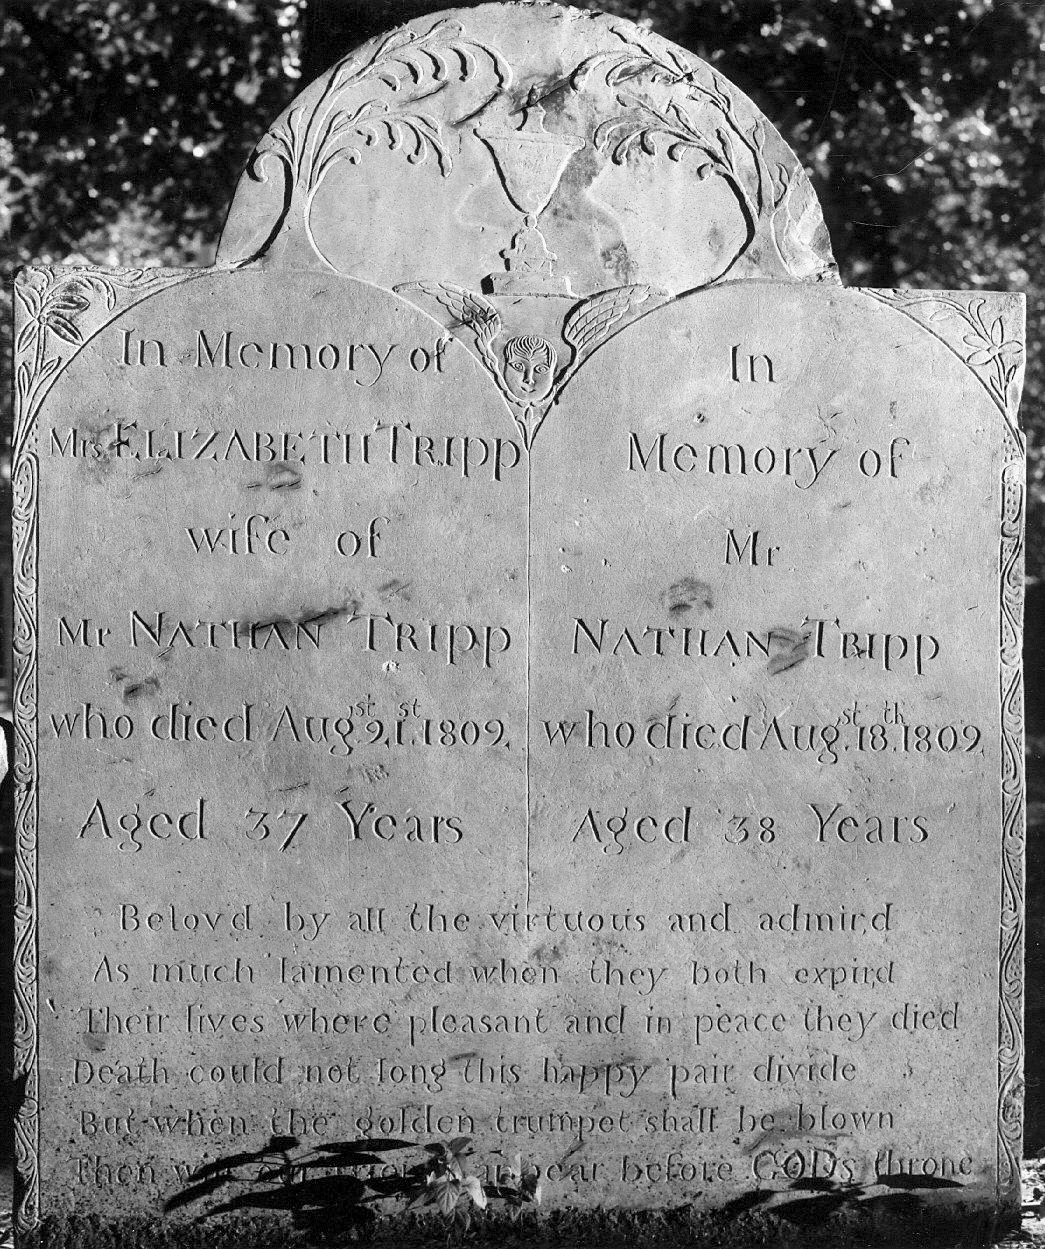 In Memory of
Mrs ELIZABETH TRIPP
wife of
Mr NATHAN TRIPP
who died Augst 9,1.st 1809,
Aged 37 Years
In
Memory of
Mr
NATHAN TRIPP
who died Augst 18.th 1809,
Aged 38 Years
Belov,d by all the virtuous and admir,d
As much lamented when they both expir,d
Their lives where pleasant and in peace they died
Death could not long this happy pair divide
But when the golden trumpet shall be blown
Then appear before GOD,s throne